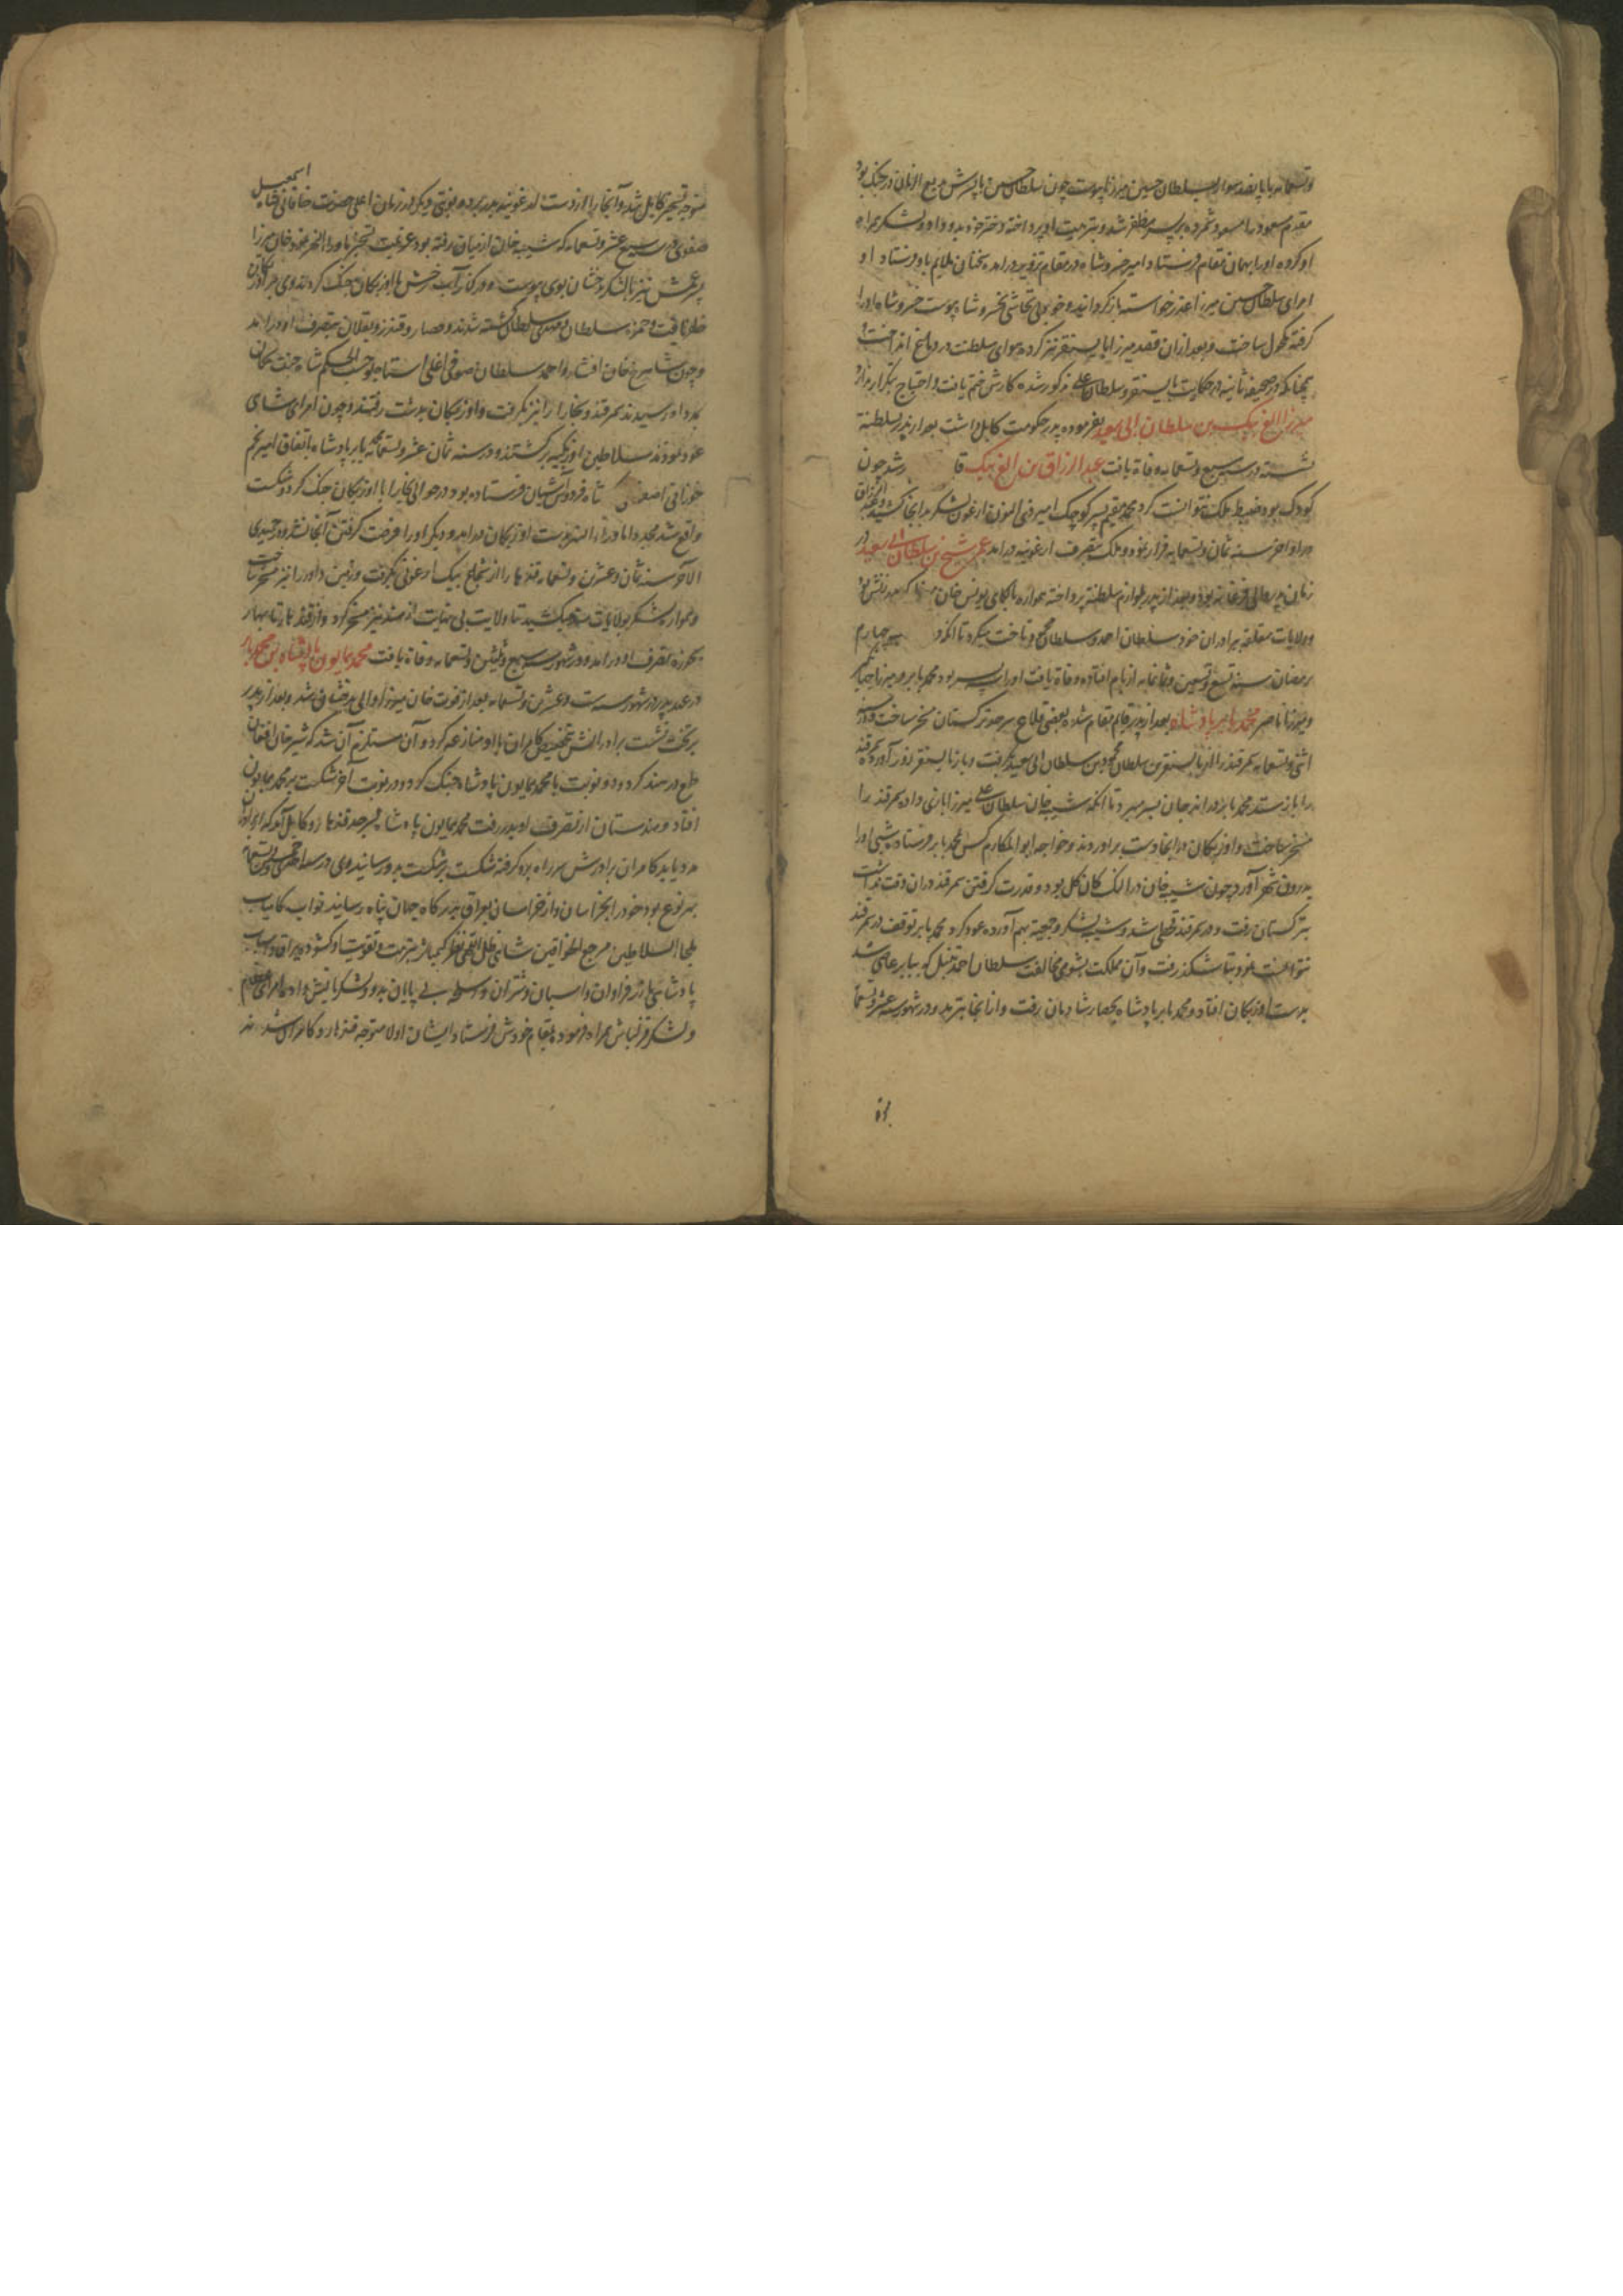 وتسعمایه با پانصد سوار بسلطان حسین میرزا پیوست چون سلطان حسین با پسرش بدیع الزمان در جنک بود
مقدم مسعود را مسعود شمرده بر پسر مظفر شد و بتربیت او پرداخته دختر خود بدو داد و لشکر همراه
او کرده او را بهمان مقام فرستاد امیر خسرو شاه در مقام تزویر درامد سخنان ملایم باو فرستاد او
امرای سلطان حسین میرزا عذر خواسته باز کردانید و خود بی تحاشی بخسرو شاه پیوست خسرو شاه او را
کرفته مکحول ساخت و بعد از ان قصد میرزا بایسنقر نیز کرده هوای سلطنت در دماغ انداخت
چنانکه در صحیفه ثانیه در حکایت بایسنقر و سلطان علی مذکور شده کارش ختم یافت و احتیاج بتکرار ندارد
میرزا الغ بیک بن سلطان ابی سعید بفرموده پدر حکومت کابل داشت بعد از پدر بسلطنة
نشسته در سنه سبع وتسعمایه وفاة یافت عبد الرزاق بن الغ بیک قا رشد چون
کودک بود ضبط ملک نتوانست کرد محمد مقیم پسر کوچک امیر ذی النون ارغون لشکر بدانجا کشید و عبد الرزاق
در اواخر سنه ثمان وتسعمایه فرار نمود و ملک بتصرف ارغونیه درامد عمر شیخ بن سلطان ابی سعید در
زمان پدر والی فرغانه بود و بعد از پدر بلوازم سلطنة پرداخته همواره با کمای یونس خان
وولایات متعلقه برادران خود سلطان احمد و سلطان محمود تاخت میکرد تا انکه در چهارم
رمضان سنه تسع وتسعین وثمانمایه از بام افتاده وفاة یافت او را سه پسر بود محمد بابر و میرزا جهانکیر
و میرزا ناصر محمد بابر پادشاه بعد از پدر قایم مقام شده بعضی قلاع سرحد ترکستان مسخر ساخت و در سنه
اثنی وتسعمایه سمرقند را از بایسنقر بن سلطان محمود بن سلطان ابی سعید بکرفت و باز بایسنقر زور آورده سمرقند
را باز ستد محمد بابر در اندجان بسر میبرد تا انکه شیبه خان سلطان علی میرزا بازی داده سمرقند را
مسخر ساخت و اوزبکان در انجا دست براوردند و خواجه ابو المکارم کس بمحمد بابر فرستاده شبی او را
بدرون شهر آورد چون شیبه خان در النک کان کل بود و قدرت کرفتن سمرقند دران وقت نداشت
بترکستان رفت و در سمرقند قحطی شد و شیبه لشکر و جمعیة بهم آورده عود کرد محمد بابر توقف در سمرقند
نتوانست نمود بتاشکند رفت و آن مملکت بشومی مخالفت سلطان احمد تنبل که ببابر عاصی شد
بدست اوزبکان افتاد و محمد بابر پادشاه بحصار شادمان رفت و از انجا بترمد و در شهور سنه عشر وتسعمایه
متوجه تسخیر کابل شد و آنجا را از دست ارغونیه بدر برده و نوبتی دیکر در زمان اعلی حضرت خاقانی شاه اسمعیل
صفوی در سنه سبع عشر وتسعمایه که شیبه خان از میان رفته بود عزیمت تسخیر ماورا النهر نمود خان میرزا
پسر عمش نیز با لشکر بدخشان بوی پیوست و در کنار آب وخش با اوزبکان جنک کردند و وی بر اوزبکان
ظفر یافت و حمزه سلطان و مهدی سلطان کشته شدند و حصار و قندز و بغلان بتصرف او درامد
و چون شاهرخ خان افشار و احمد سلطان صوفی اغلی استاجلو حسب الحکم شاه جنت مکان
بمدد او رسیدند سمرقند و بخارا را نیز بکرفت و اوزبکان بدشت رفتند و چون امرای شاهی
عود نمودند سلاطین اوزبکیه برکشتند و در سنه ثمان عشر وتسعمایه بابر پادشاه باتفاق امیر نجم
خوزانی اصفهانی که شاه فردوس آشیان فرستاده بود در حوالی بخارا با اوزبکان جنک کرد و شکست
واقع شد مجددا ماوراء النهر بدست اوزبکان درامد و دیکر او را فرصت کرفتن آنجا نشد و در جمیدی
الاخر سنه ثمان وعشرین وتسعمایه قندهار را از شجاع بیک ارغونی بکرفت و زمین داور را نیز مسخر ساخت
و همواره لشکر بولایات هند میکشید تا ولایت بی نهایت از هند نیز مسخر کرد و از قندهار تا بهار
بحوزه تصرف او درامد و در شهور سنه سبع وثلثین وتسعمایه وفاة یافت محمد همایون پادشاه بن محمد بابر
در عهد پدر در شهور سنه ست وعشرین وتسعمایه بعد از فوت خان میرزا والی بدخشان شد و بعد از پدر
بر تخت نشست برادرانش بتخصیص کامران با او منازعه کرد و آن مستلزم آن شد که شیر خان افغان
طمع در هند کرد و دو نوبت با محمد همایون پادشاه جنک کرد و در نوبت آخر شکست بر محمد همایون
افتاد و هندستان از تصرف او بدر رفت محمد همایون پادشاه بسرحد قندهار و کابل آمد که از برادران
مدد یابد کامران برادرش سر راه بدو کرفته شکست بر شکست بدو رسانید وی در سنه احدی وخمسین وتسعمایه
بهر نوع بود خود را بخراسان و از خراسان بعراق بدرکاه جهان پناه رسانید نواب کامیاب
ملجا السلاطین مرجع الخواقین شاهی ظل الهی نظر کیمیا اثر بتربیت و تقویت او کشوده یراق و اسباب
پادشاهی باز فراوان و اسبان و شتران و اسلحه بی پایان بدو و لشکریانش داده امرای عظام
و لشکر قزلباش همراه او نموده بمقام خودش فرستاد ایشان اولا متوجه قندهار و کامران شدند